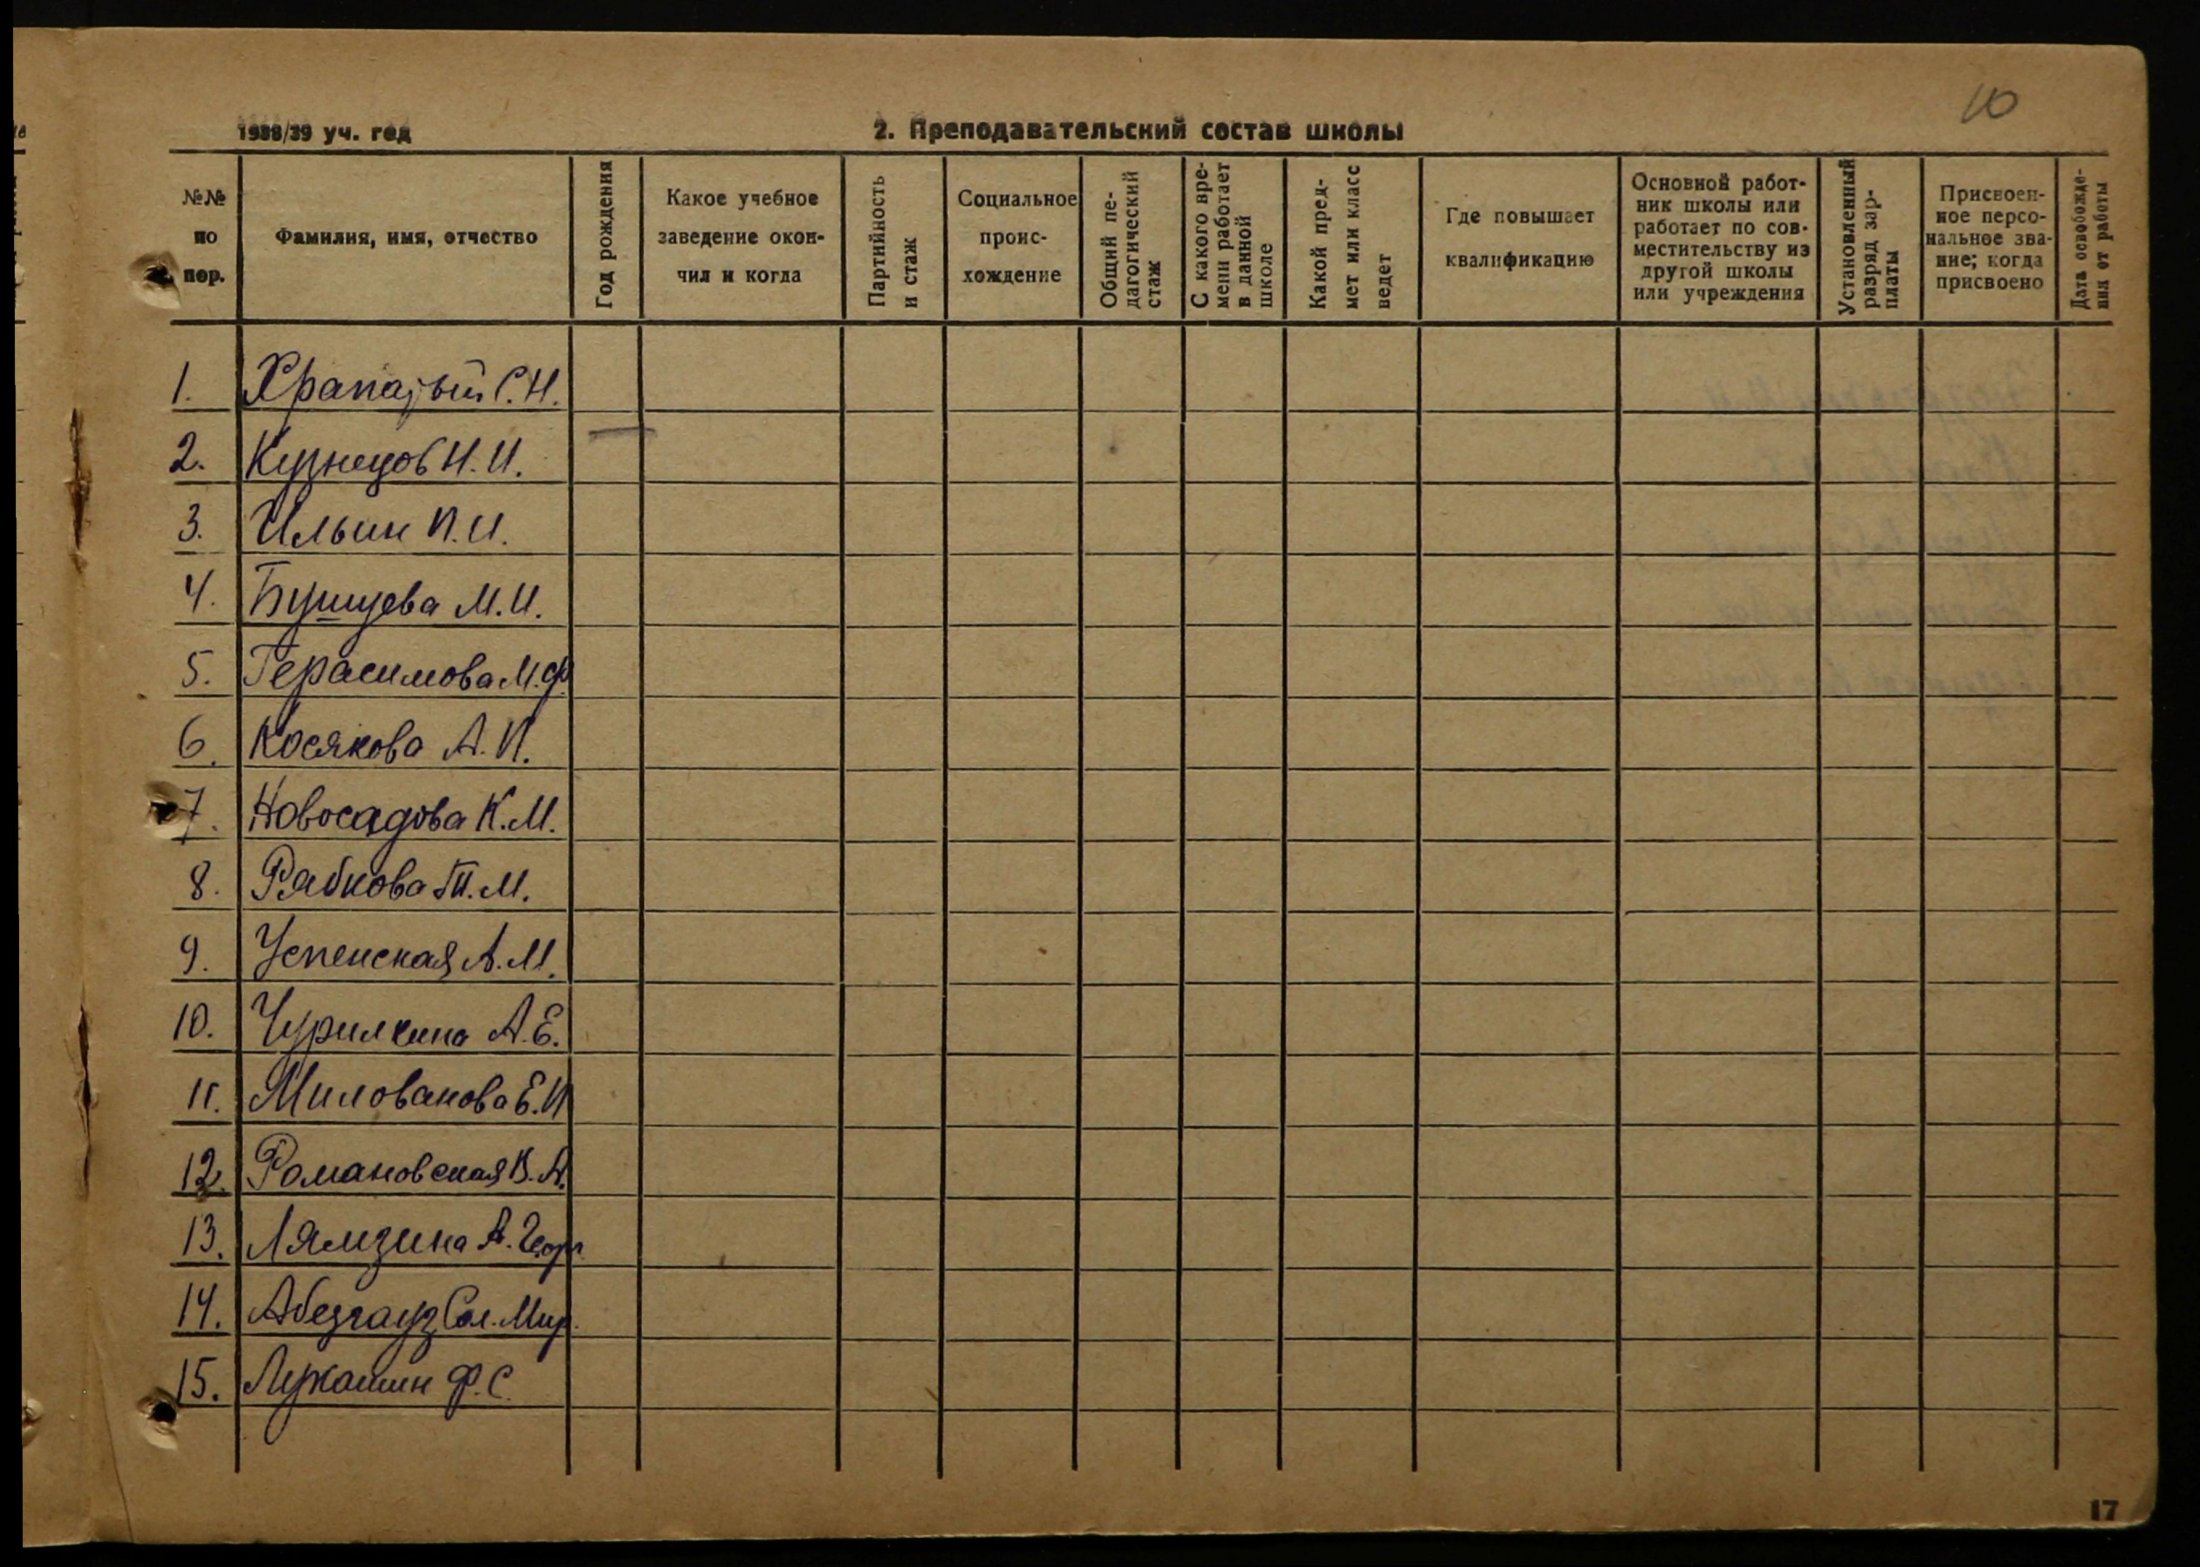 10
1938/39 уч. год
2. Преподавательский состав школы
№№ по пор.
Фамилия, имя, отчество
Год рождения
Какое учебное заведение окончил и когда
Партийность и стаж
Социальное происхождение
Общий педагогический стаж
С какого времени работает в данной школе
Какой предмет или класс ведет
Где повышает квалификацию
Основной работник школы или работает по совместительству из другой школы или учреждения
Установленный разряд зарплаты
Присвоенное персональное звание; когда присвоено
Дата освобождения от работы
1. Храпатый С.Н.
2. Кузнецов Н.И.
3. Ильин П.И.
4. Бушуева М.И.
5. Герасимова М.Ф.
6. Косякова А.П.
7. Новосадова К.М.
8. Рябкова Т.М.
9. Успенская А.М.
10. Чурилкина А.Е.
11. Милованова Е.И
12. Романовская В.А.
13. Лямзина А. Георг.
14. Абезгауз Сол. Мир.
15. Лукашин Ф.С.
17